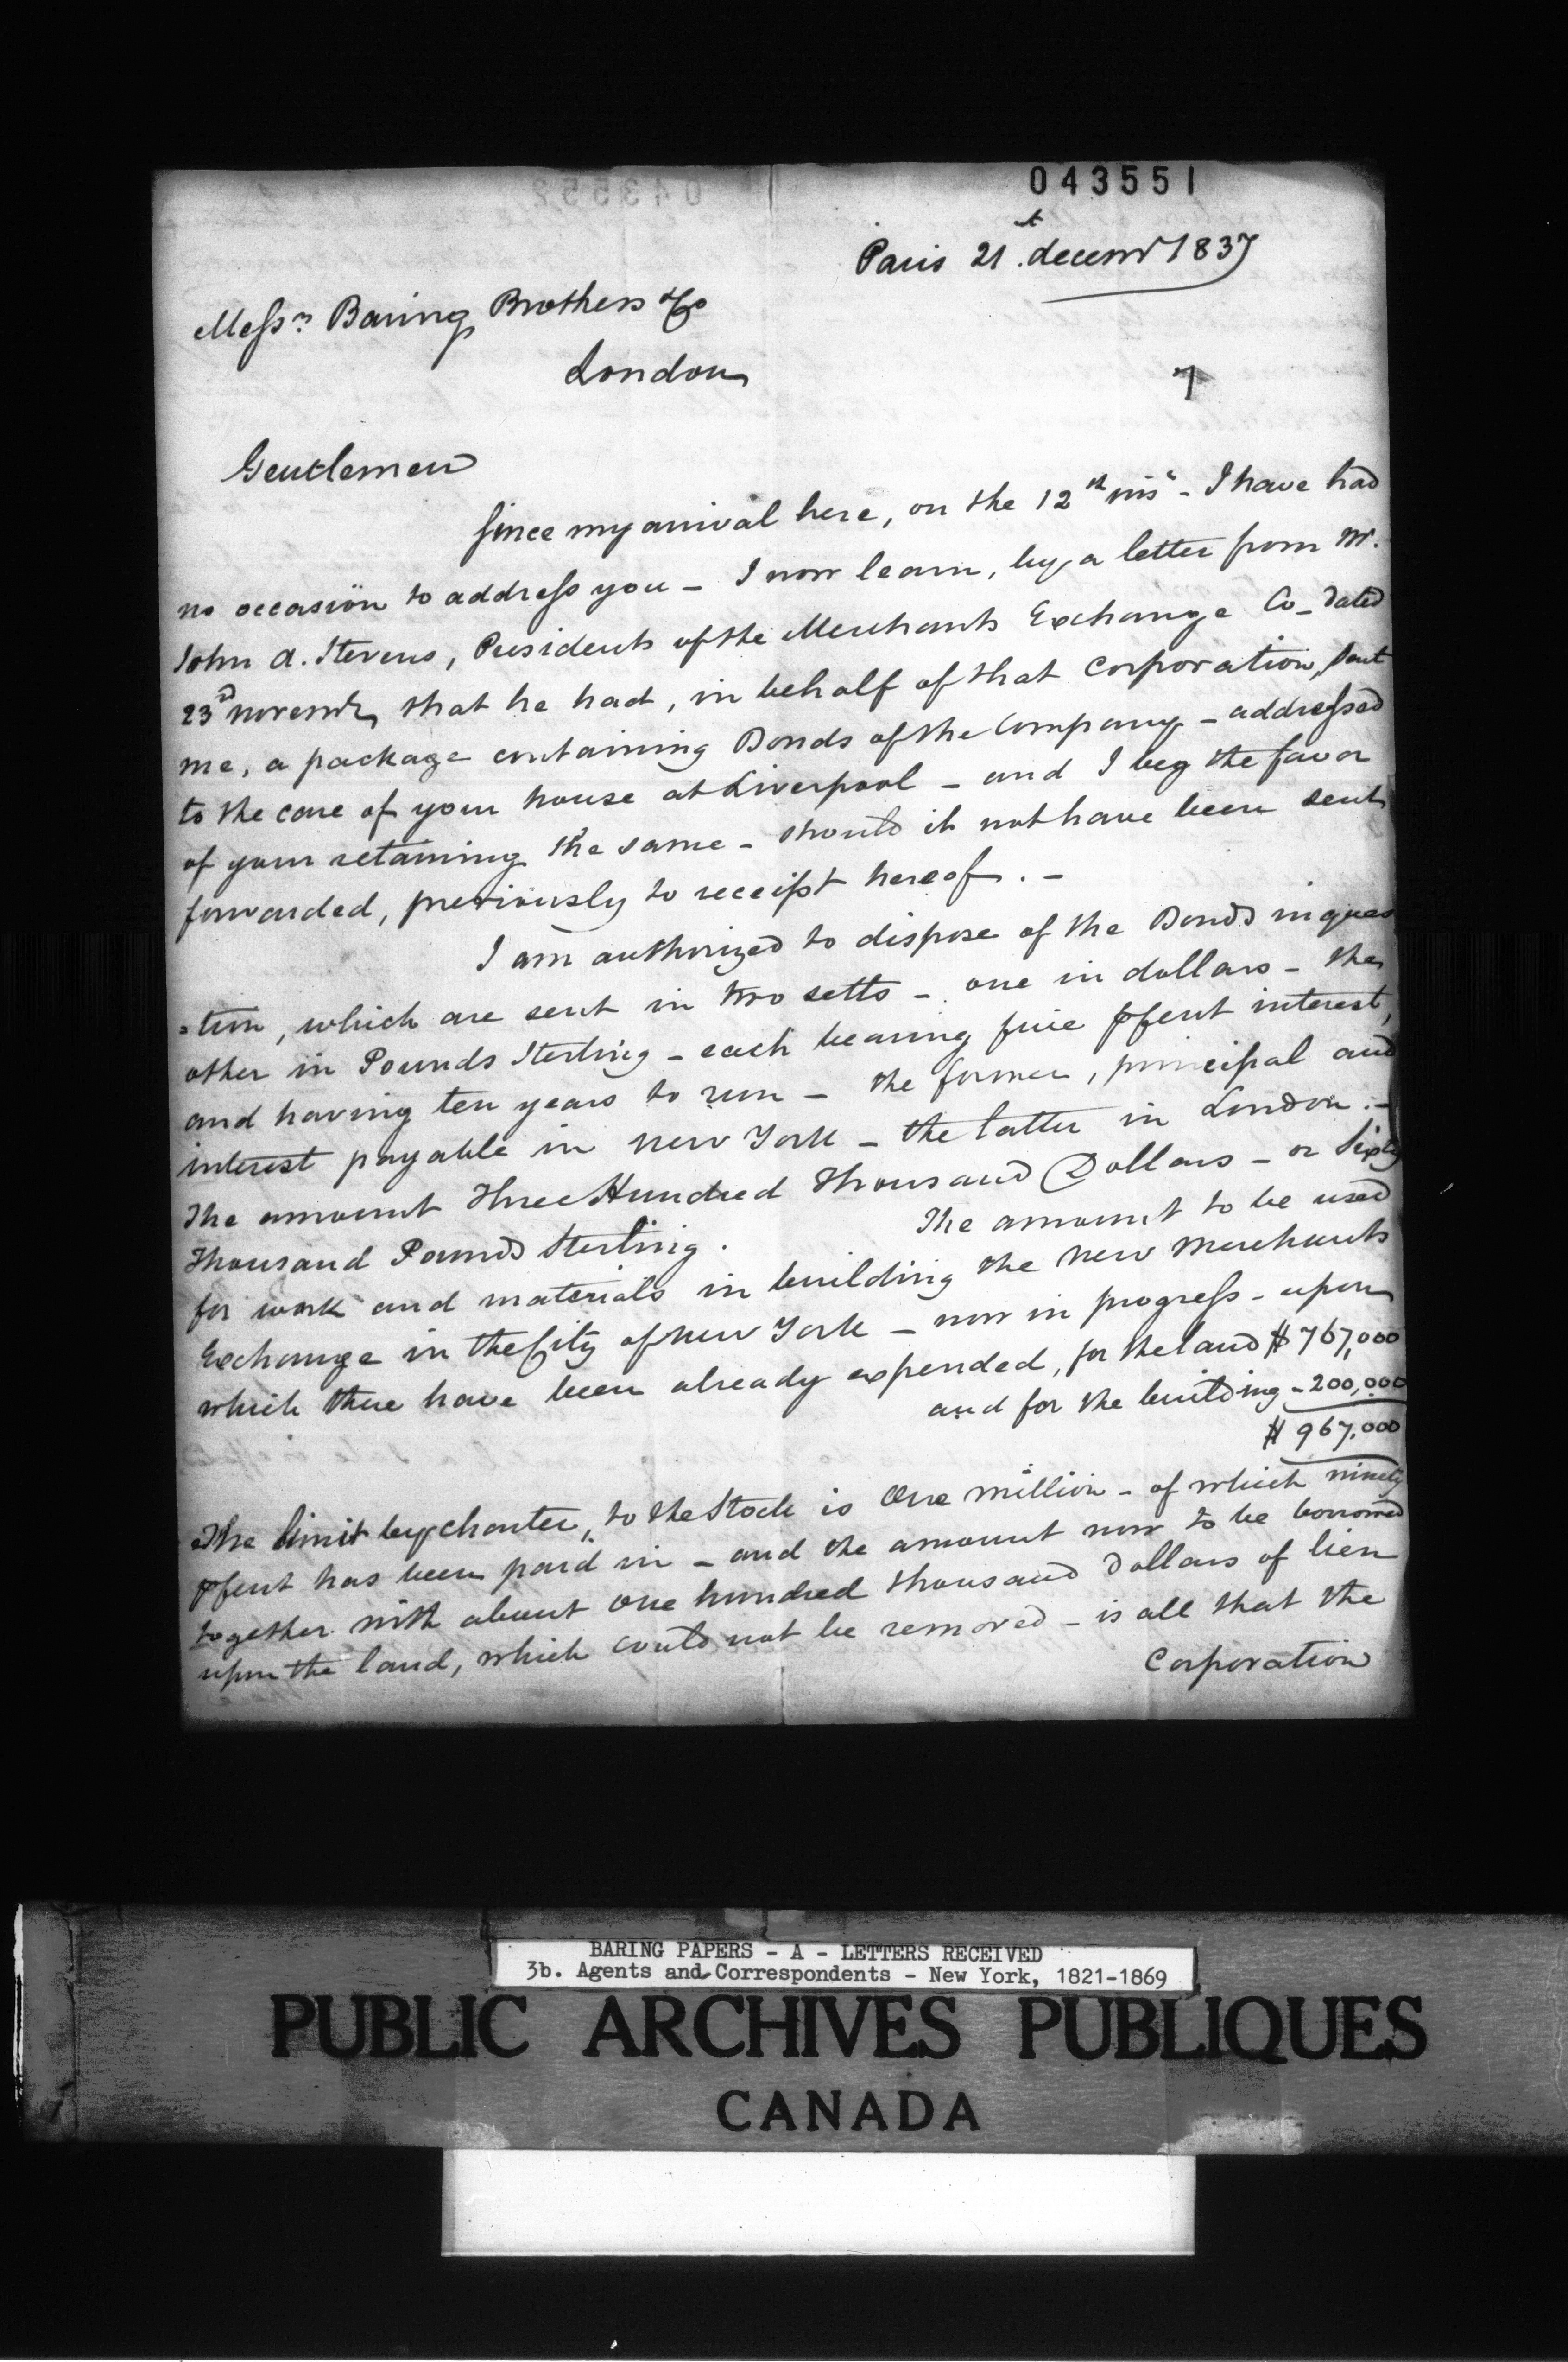 043551
Paris 21st. decemr 1837
Messrs Baring Brothers & Co
London
7
Gentlemen
Since my arrival here, on the 12th ins - I have had
no occasion to address you - I now learn, by a letter from Mr.
John A. Stevens, President of the Merchants Exchange Co - dated
23d novembr, that he had, in behalf of that corporation, sent
me, a package containing Bonds of the Company - addressed
to the care of your house at Liverpool - and I beg the favor
of your retaining the same - should it not have been sent
forwarded, previously to receipt hereof. -
I am authorized to dispose of the Bonds in ques
=tion, which are sent in two setts - one in dollars - the
other in Pounds Sterling - each bearing five pCent interest,
and having ten years to run - the former, principal and
interest payable in New York - the latter in London. -
The amount Three Hundred Thousand Dollars - or Sixty
Thousand Pounds Sterling. The amount to be used
for work and materials in building the New Merchants
Exchange in the City of New York - now in progress - upon
which there have been already expended, for the land $ 767,000
and for the building - 200,000
$ 967,000
The limit by charter, to the Stock is One million - of which ninety
pCent has been paid in - and the amount now to be borrowed
together with about One hundred thousand Dollars of lien
upon the land, which could not be removed - is all that the
Corporation
BARING PAPERS - A - LETTERS RECEIVED
3b. Agents and Correspondents - New York, 1821-1869
PUBLIC ARCHIVES PUBLIQUES
CANADA